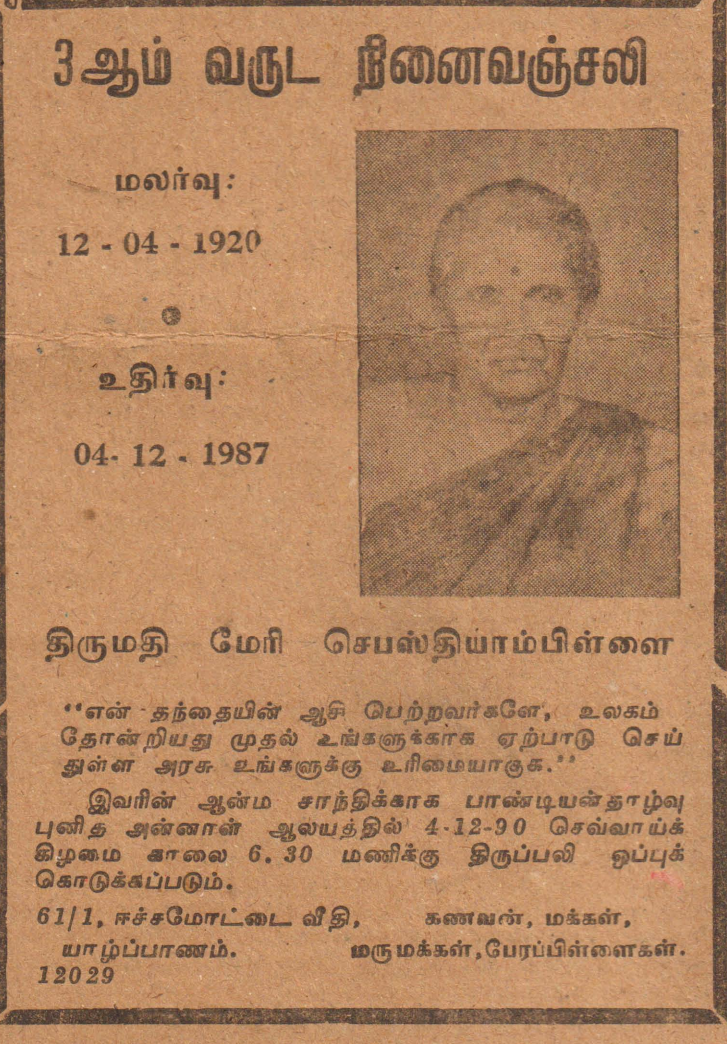 3ஆம் வருட நினைவஞ்சலி
மலர்வு:
12 - 04 - 1920
உதிர்வு:
04- 12 - 1987
திருமதி மேரி செபஸ்தியாம்பிள்ளை
“என் தந்தையின் ஆசி பெற்றவர்களே, உலகம்
தோன்றியது முதல் உங்களுக்காக ஏற்பாடு செய்
துள்ள அரசு உங்களுக்கு உரிமையாகுக.”
இவரின் ஆன்ம சாந்திக்காக பாண்டியன்தாழ்வு
புனித அன்னாள் ஆலயத்தில் 4-12-90 செவ்வாய்க்
கிழமை காலை 6.30 மணிக்கு திருப்பலி ஒப்புக்
கொடுக்கப்படும்.
61/1, ஈச்சமோட்டை வீதி, கணவன், மக்கள்,
யாழ்ப்பாணம். மருமக்கள், பேரப்பிள்ளைகள்.
12029